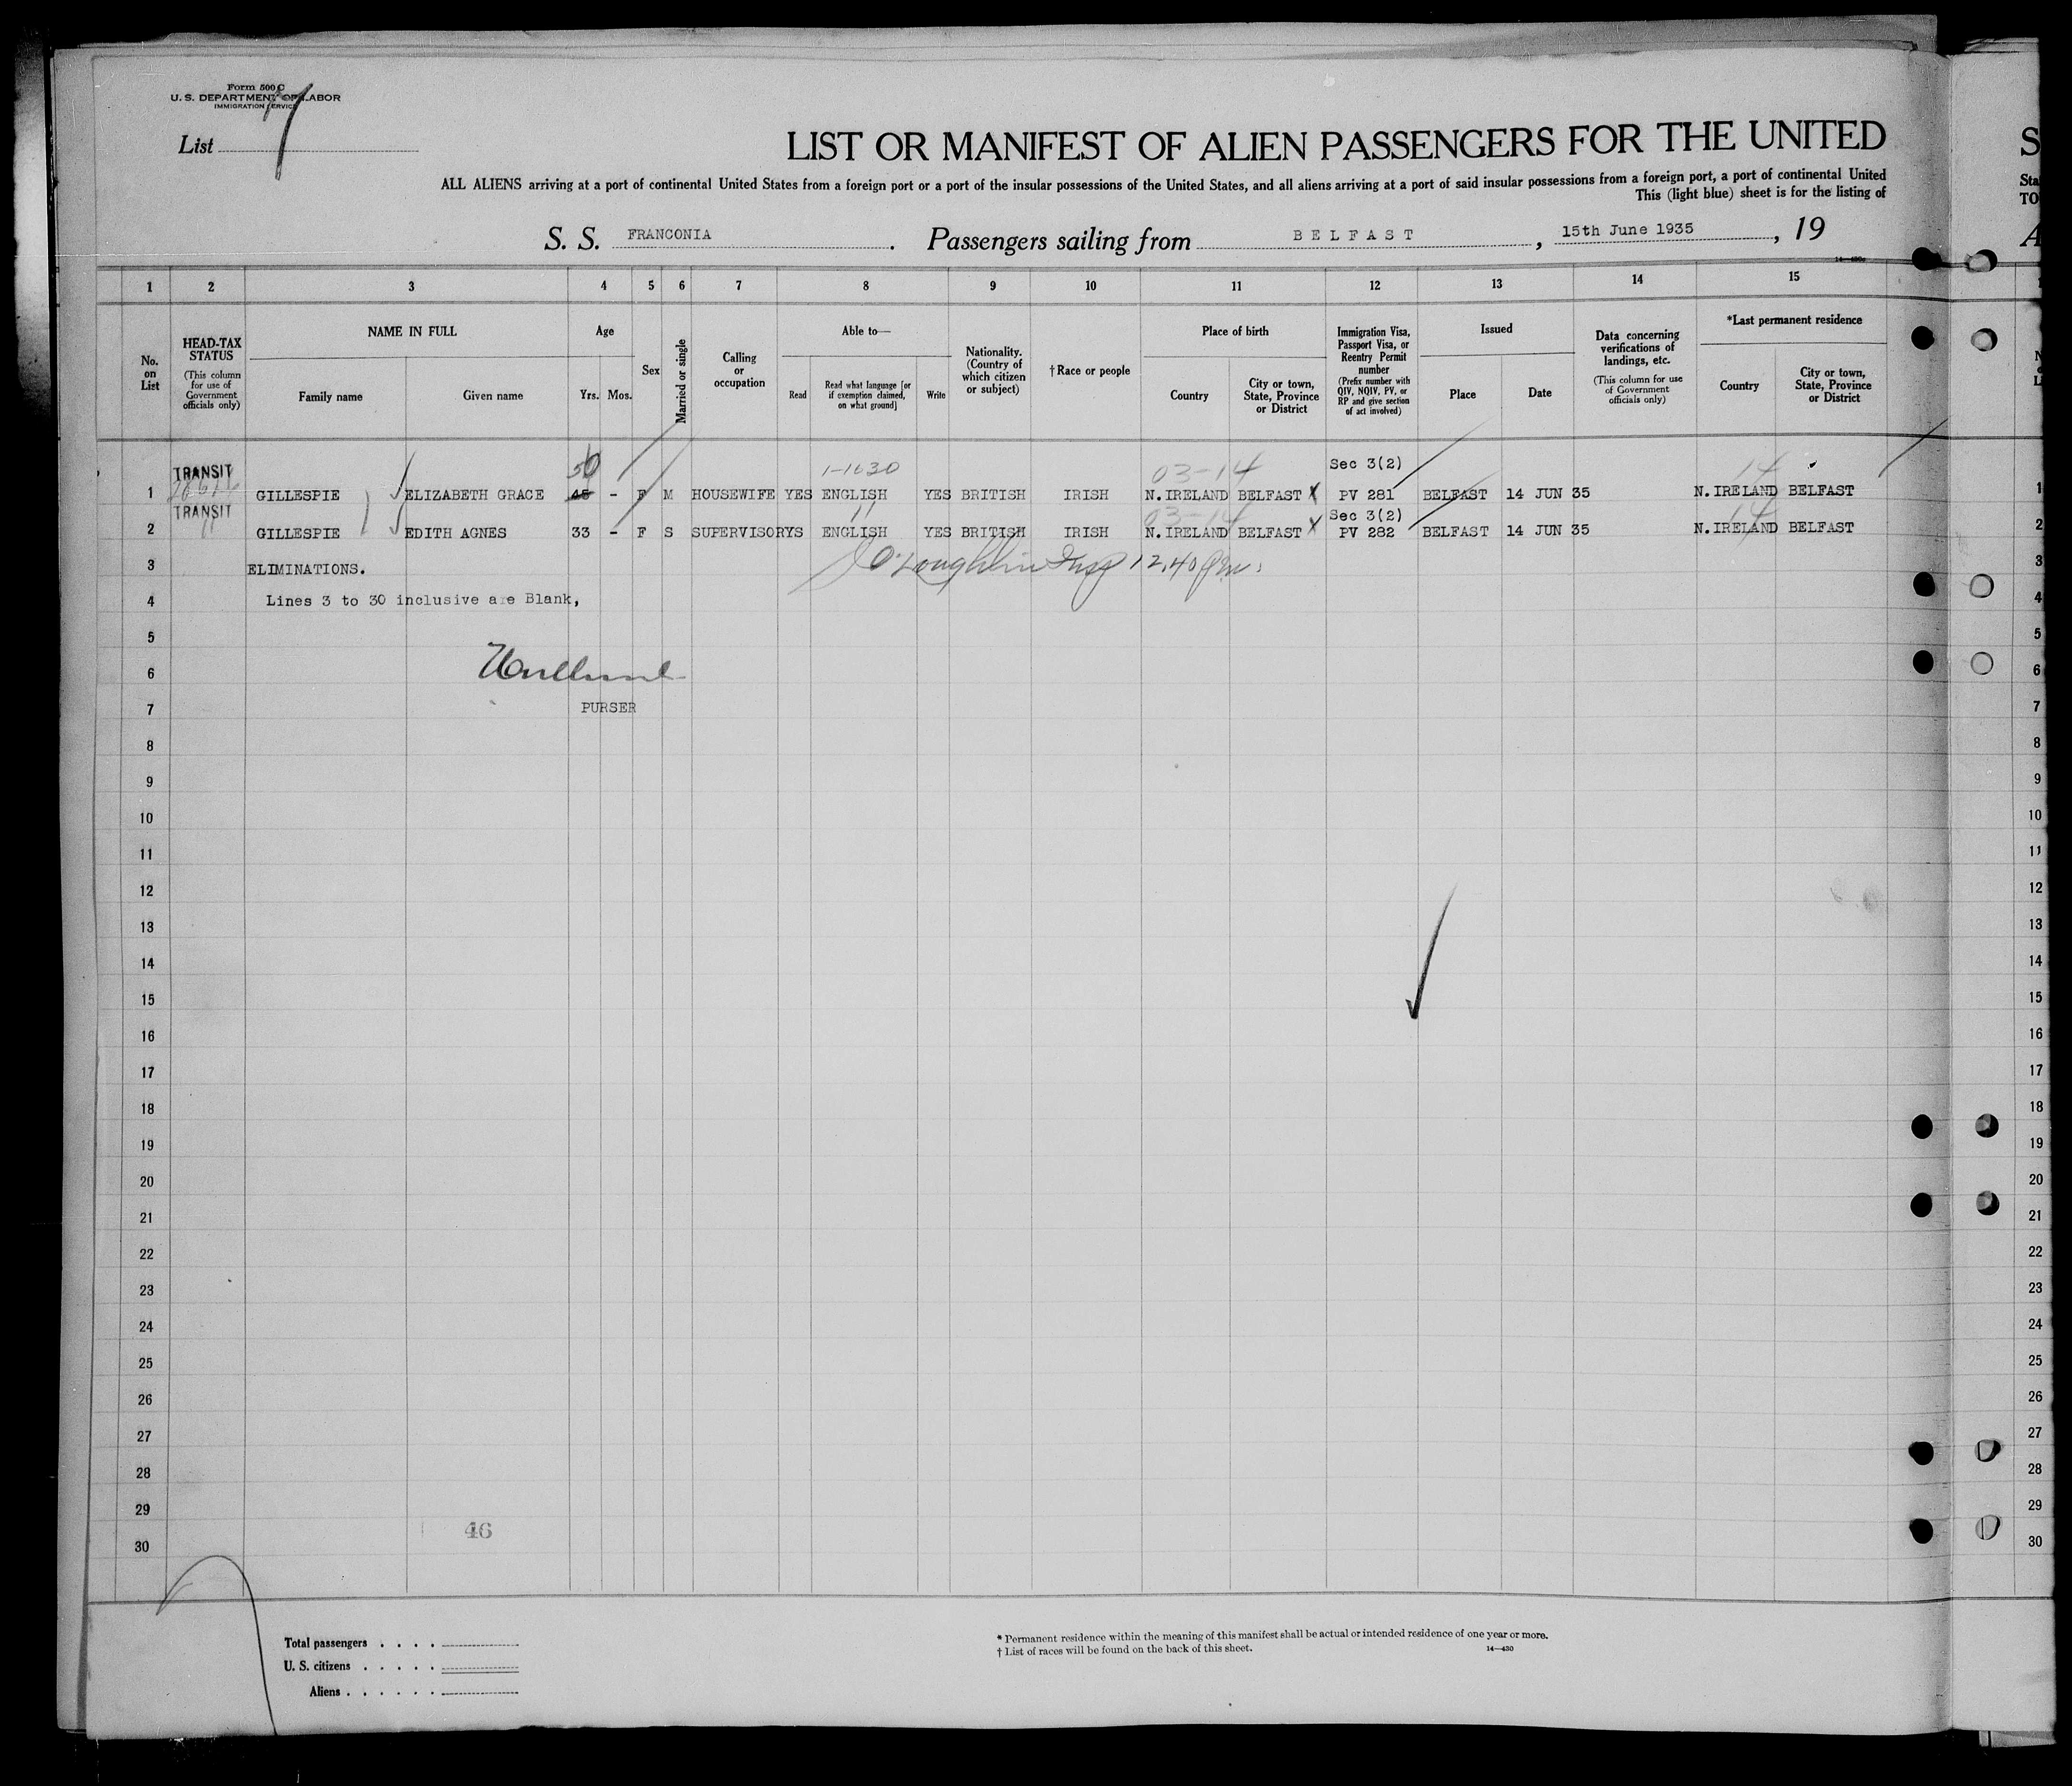 Form 500 C
U. S. DEPARTMENT OF LABOR
IMMIGRATION SERVICE
List 7
LIST OR MANIFEST OF ALIEN PASSENGERS FOR THE UNITED
ALL ALIENS arriving at a port of continental United States from a foreign port or a port of the insular possessions of the United States, and all aliens arriving at a port of said insular possessions from a foreign port, a port of continental United
This (light blue) sheet is for the listing of
S. S. FRANCONIA . Passengers sailing from BELFAST , 15th June 1935 , 19
14—430
1 2 3 4 5 6 7 8 9 10 11 12 13 14 15
No. on List
HEAD-TAX STATUS (This column for use of Government officials only)
NAME IN FULL
Family name Given name
Age
Yrs. Mos.
Sex
Married or single
Calling or occupation
Able to—
Read
Read what language [or if exemption claimed, on what ground]
Write
Nationality. (Country of which citizen or subject)
†Race or people
Place of birth
Country
City or town, State, Province or District
Immigration Visa, Passport Visa, or Reentry Permit number (Prefix number with QIV, NQIV, PV, or RP and give section of act involved)
Issued
Place Date
Data concerning verifications of landings, etc. (This column for use of Government officials only)
*Last permanent residence
Country
City or town, State, Province or District
TRANSIT 50 1-1630 03-14 Sec 3(2) 14
1 GILLESPIE ELIZABETH GRACE 45 - F M HOUSEWIFE YES ENGLISH YES BRITISH IRISH N.IRELAND BELFAST X PV 281 BELFAST 14 JUN 35 N.IRELAND BELFAST 1
TRANSIT 11 03-14 Sec 3(2) 14
2 " GILLESPIE EDITH AGNES 33 - F S SUPERVISOR YS ENGLISH YES BRITISH IRISH N.IRELAND BELFAST X PV 282 BELFAST 14 JUN 35 N.IRELAND BELFAST 2
3 ELIMINATIONS. O'Loughlin Insp 12.40 pm. 3
4 Lines 3 to 30 inclusive are Blank, 4
5 5
6 6
7 PURSER 7
8 8
9 9
10 10
11 11
12 12
13 13
14 14
15 15
16 16
17 17
18 18
19 19
20 20
21 21
22 22
23 23
24 24
25 25
26 26
27 27
28 28
29 29
46
30 30
Total passengers . . . .
U. S. citizens . . . . .
Aliens . . . . . .
* Permanent residence within the meaning of this manifest shall be actual or intended residence of one year or more.
† List of races will be found on the back of this sheet.
14—430
S
Sta
TO
A